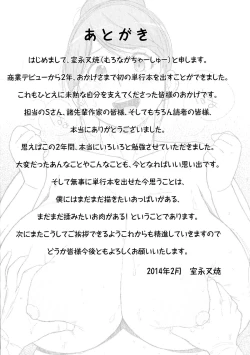 あとがき
はじめまして、室永叉焼(むろながちゃーしゅー)と申します。
商業デビューから2年、おかげさまで初の単行本を出すことができました。
これもひとえに未熟な自分を支えてくださった皆様のおかげです。
担当のSさん、諸先輩作家の皆様、そしてもちろん読者の皆様、
本当にありがとうございました。
思えばこの2年間、本当にいろいろと勉強させていただきました。
大変だったあんなことやこんなことも、今となればいい思い出です。
そして無事に単行本を出せた今思うことは、
僕にはまだまだ描きたいおっぱいがある、
まだまだ揉みたいお肉がある! ということであります。
次にまたこうしてご挨拶できるようこれからも精進していきますので
どうか皆様今後ともよろしくお願いいたします。
2014年2月 室永叉焼